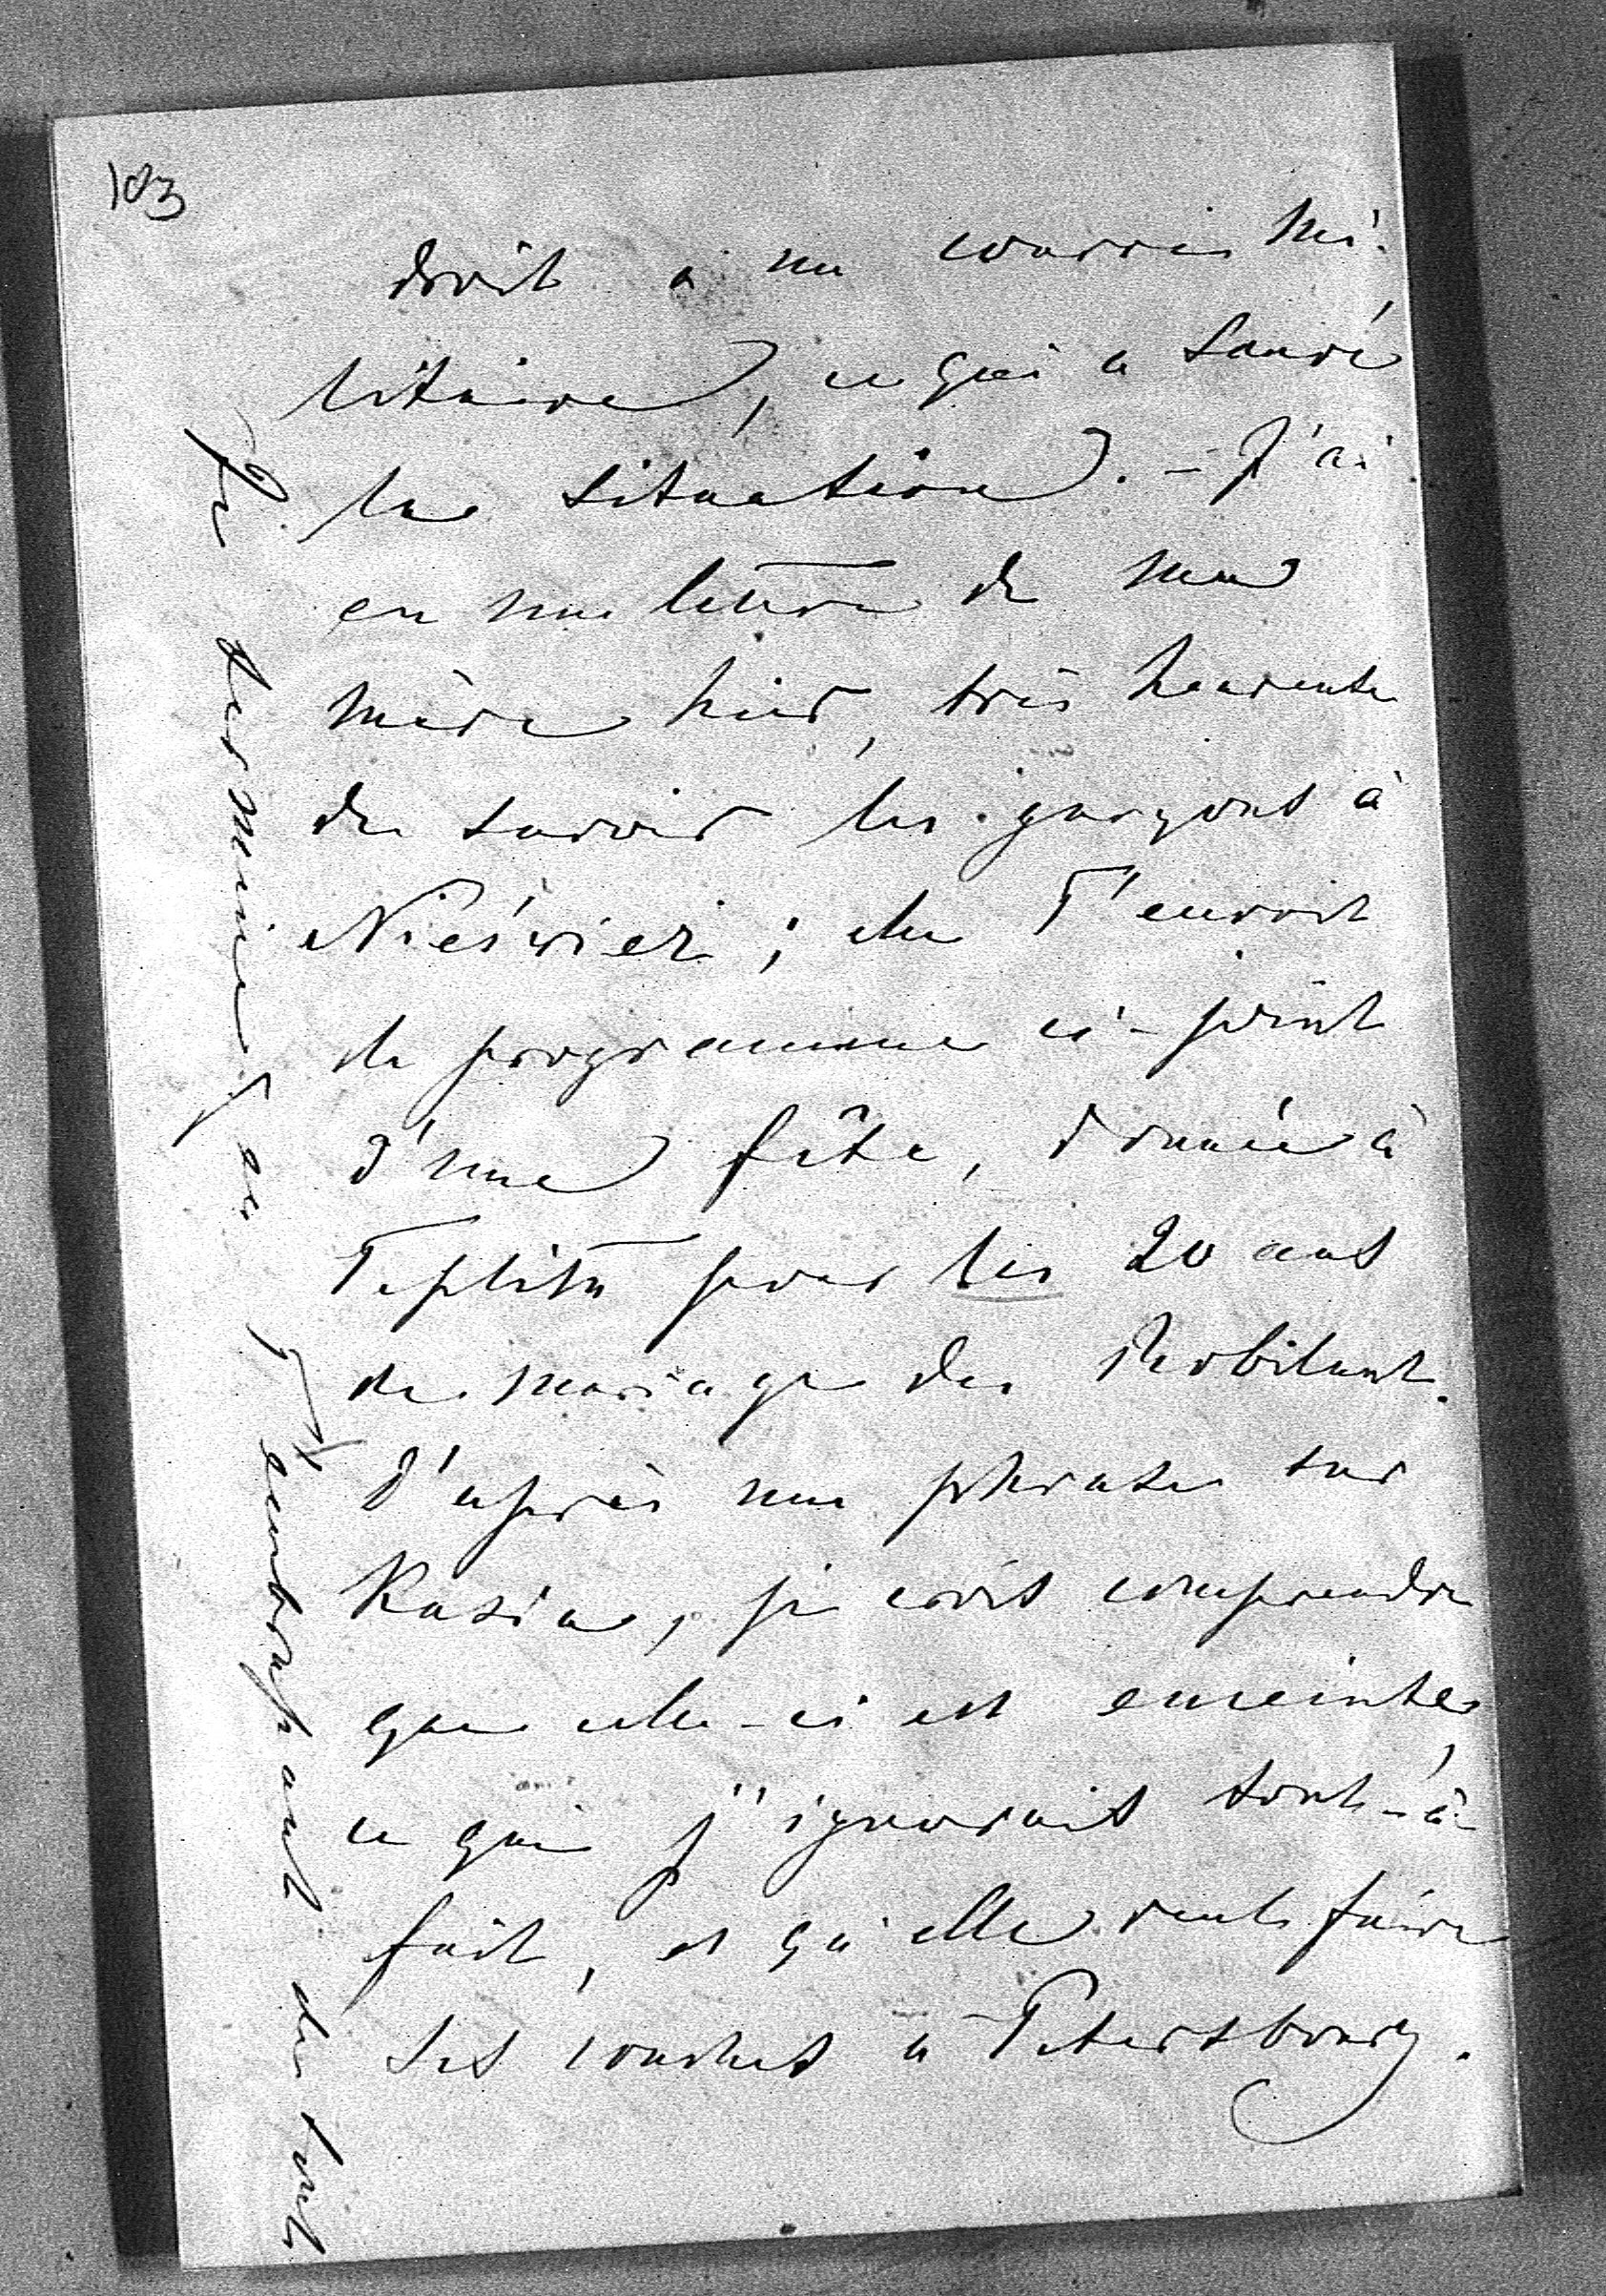 103
droit à un convoi mi-
litaire, ce qui a sauvé
la situation. – J'ai
eu une lettre de ma
mère hier, très heureuse
de savoir les garçons à
Nieświez ; elle T'envoit
le programme ci-joint
d'une fête, donnée à
Teplitz pour les 20 ans
de mariage des Robilant.
D'après une phrase sur
Kasia, je crois comprendre
que celle-ci est enceinte,
ce que j'ignorais tout-à-
fait, et qu'elle veut faire
ses couches à Petersbourg.
Je termine en T'embrassant de tout